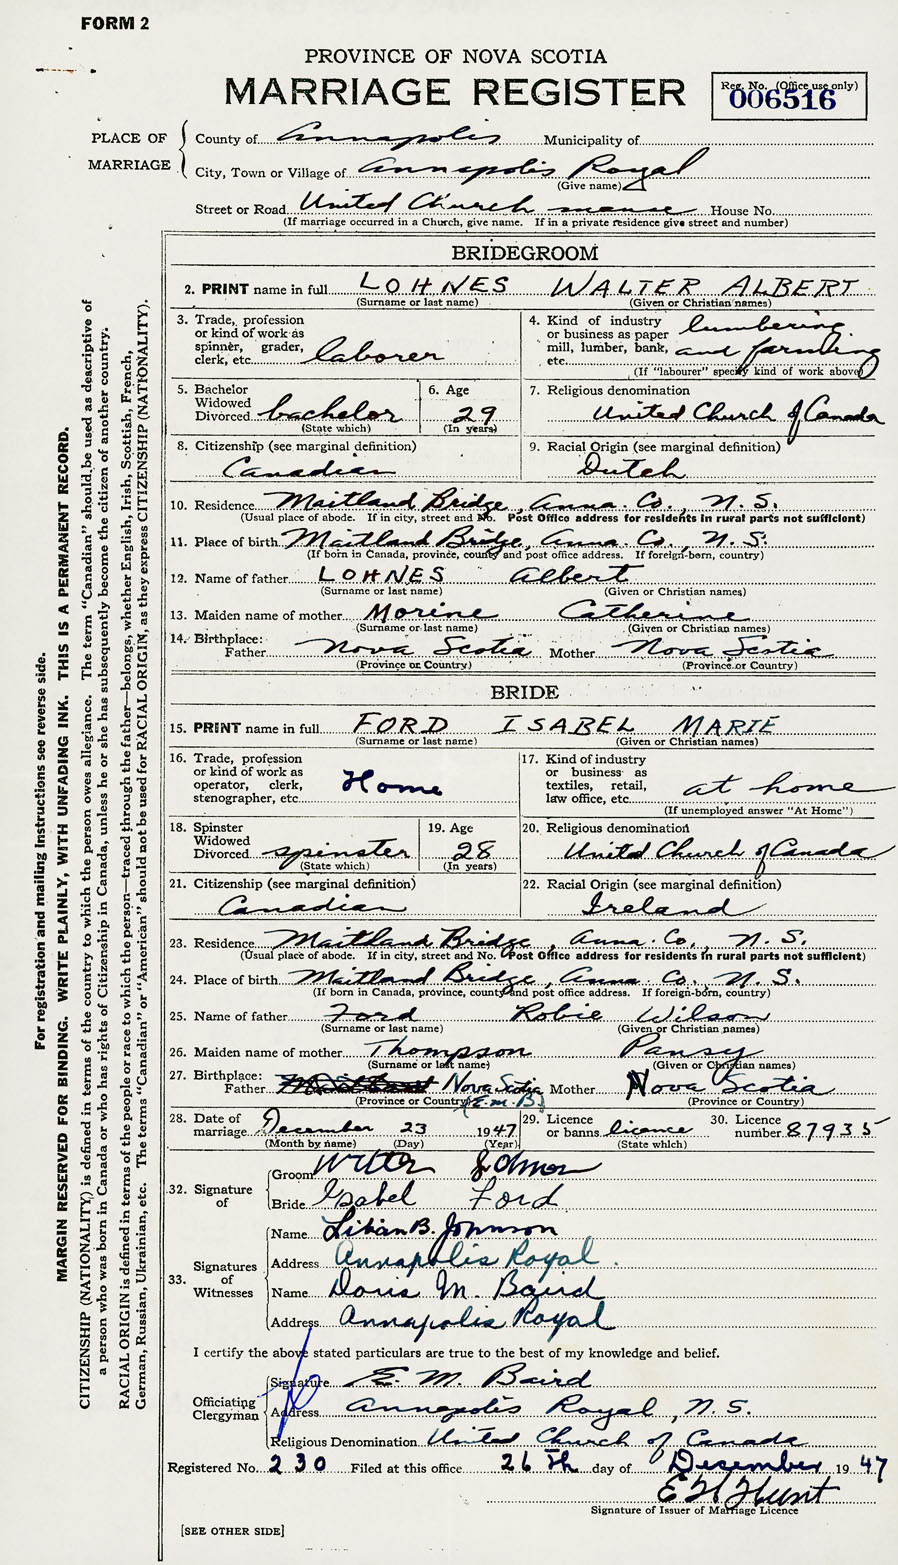 FORM 2
PROVINCE OF NOVA SCOTIA
MARRIAGE REGISTER
Reg. No. (Office use only)
006516
PLACE OF MARRIAGE
County of Annapolis Municipality of
City, Town or Village of Annapolis Royal
(Give name)
Street or Road United Church manse House No.
(If marriage occurred in a Church, give name. If in a private residence give street and number)
BRIDEGROOM
2. PRINT name in full LOHNES WALTER ALBERT
(Surname or last name) (Given or Christian names)
3. Trade, profession or kind of work as spinner, grader, clerk, etc. laborer
4. Kind of industry or business as paper mill, lumber, bank, etc. lumbering and farming
(If "labourer" specify kind of work above)
5. Bachelor Widowed Divorced bachelor
(State which)
6. Age 29
(In years)
7. Religious denomination
United Church of Canada
8. Citizenship (see marginal definition)
Canadian
9. Racial Origin (see marginal definition)
Dutch
10. Residence Maitland Bridge, Anna. Co., N.S.
(Usual place of abode. If in city, street and No. Post Office address for residents in rural parts not sufficient)
11. Place of birth Maitland Bridge, Anna. Co., N.S.
(If born in Canada, province, county and post office address. If foreign-born, country)
12. Name of father LOHNES Albert
(Surname or last name) (Given or Christian names)
13. Maiden name of mother Morine Catherine
(Surname or last name) (Given or Christian names)
14. Birthplace:
Father Nova Scotia Mother Nova Scotia
(Province or Country) (Province or Country)
BRIDE
15. PRINT name in full FORD ISABEL MARIE
(Surname or last name) (Given or Christian names)
16. Trade, profession or kind of work as operator, clerk, stenographer, etc. Home
17. Kind of industry or business as textiles, retail, law office, etc. at home
(If unemployed answer "At Home")
18. Spinster Widowed Divorced spinster
(State which)
19. Age 28
(In years)
20. Religious denomination
United Church of Canada
21. Citizenship (see marginal definition)
Canadian
22. Racial Origin (see marginal definition)
Ireland
23. Residence Maitland Bridge, Anna. Co., N.S.
(Usual place of abode. If in city, street and No. Post Office address for residents in rural parts not sufficient)
24. Place of birth Maitland Bridge, Anna Co. N.S.
(If born in Canada, province, county and post office address. If foreign-born, country)
25. Name of father Ford Robie Wilson
(Surname or last name) (Given or Christian names)
26. Maiden name of mother Thompson Pansy
(Surname or last name) (Given or Christian names)
27. Birthplace:
Father Nova Scotia Mother Nova Scotia
(Province or Country) (E.M.B.) (Province or Country)
28. Date of marriage December 23 1947
(Month by name) (Day) (Year)
29. Licence or banns licence
(State which)
30. Licence number 87935
32. Signature of
Groom
Bride Isabel Ford
33. Signatures of Witnesses
Name Lilian B. Johnson
Address Annapolis Royal.
Name Doris M. Baird
Address Annapolis Royal
I certify the above stated particulars are true to the best of my knowledge and belief.
Officiating Clergyman
Signature E. M. Baird
Address Annapolis Royal, N.S.
Religious Denomination United Church of Canada
Registered No. 230 Filed at this office 26th day of December 1947
Signature of Issuer of Marriage Licence
[SEE OTHER SIDE]
For registration and mailing instructions see reverse side.
MARGIN RESERVED FOR BINDING. WRITE PLAINLY, WITH UNFADING INK. THIS IS A PERMANENT RECORD.
CITIZENSHIP (NATIONALITY) is defined in terms of the country to which the person owes allegiance. The term "Canadian" should be used as descriptive of
a person who was born in Canada or who has rights of Citizenship in Canada, unless he or she has subsequently become the citizen of another country.
RACIAL ORIGIN is defined in terms of the people or race to which the person—traced through the father—belongs, whether English, Irish, Scottish, French,
German, Russian, Ukrainian, etc. The terms "Canadian" or "American" should not be used for RACIAL ORIGIN, as they express CITIZENSHIP (NATIONALITY).